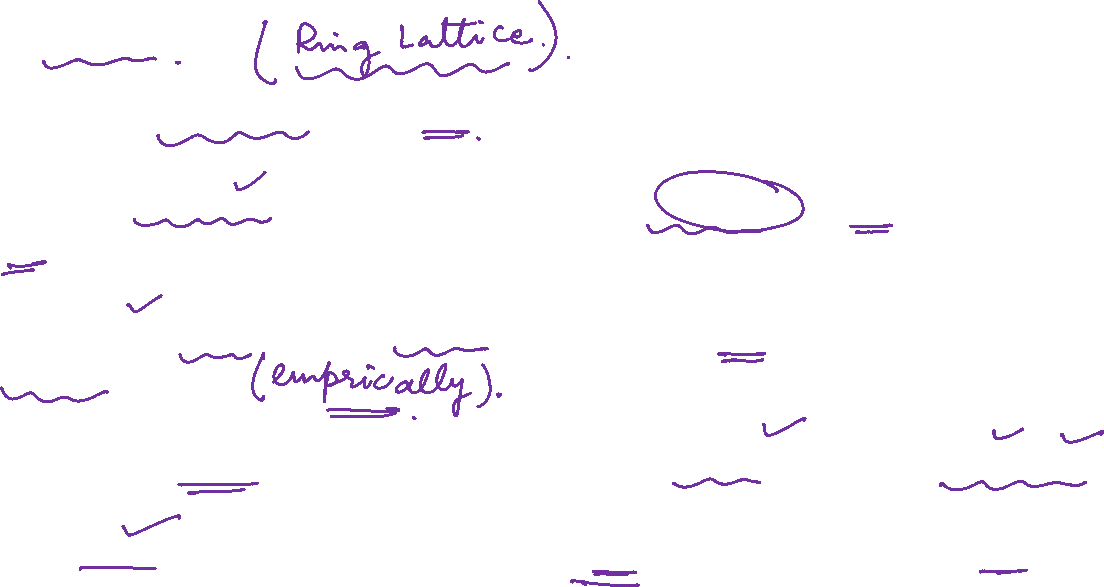 (Ring Lattice.).
(emprically).